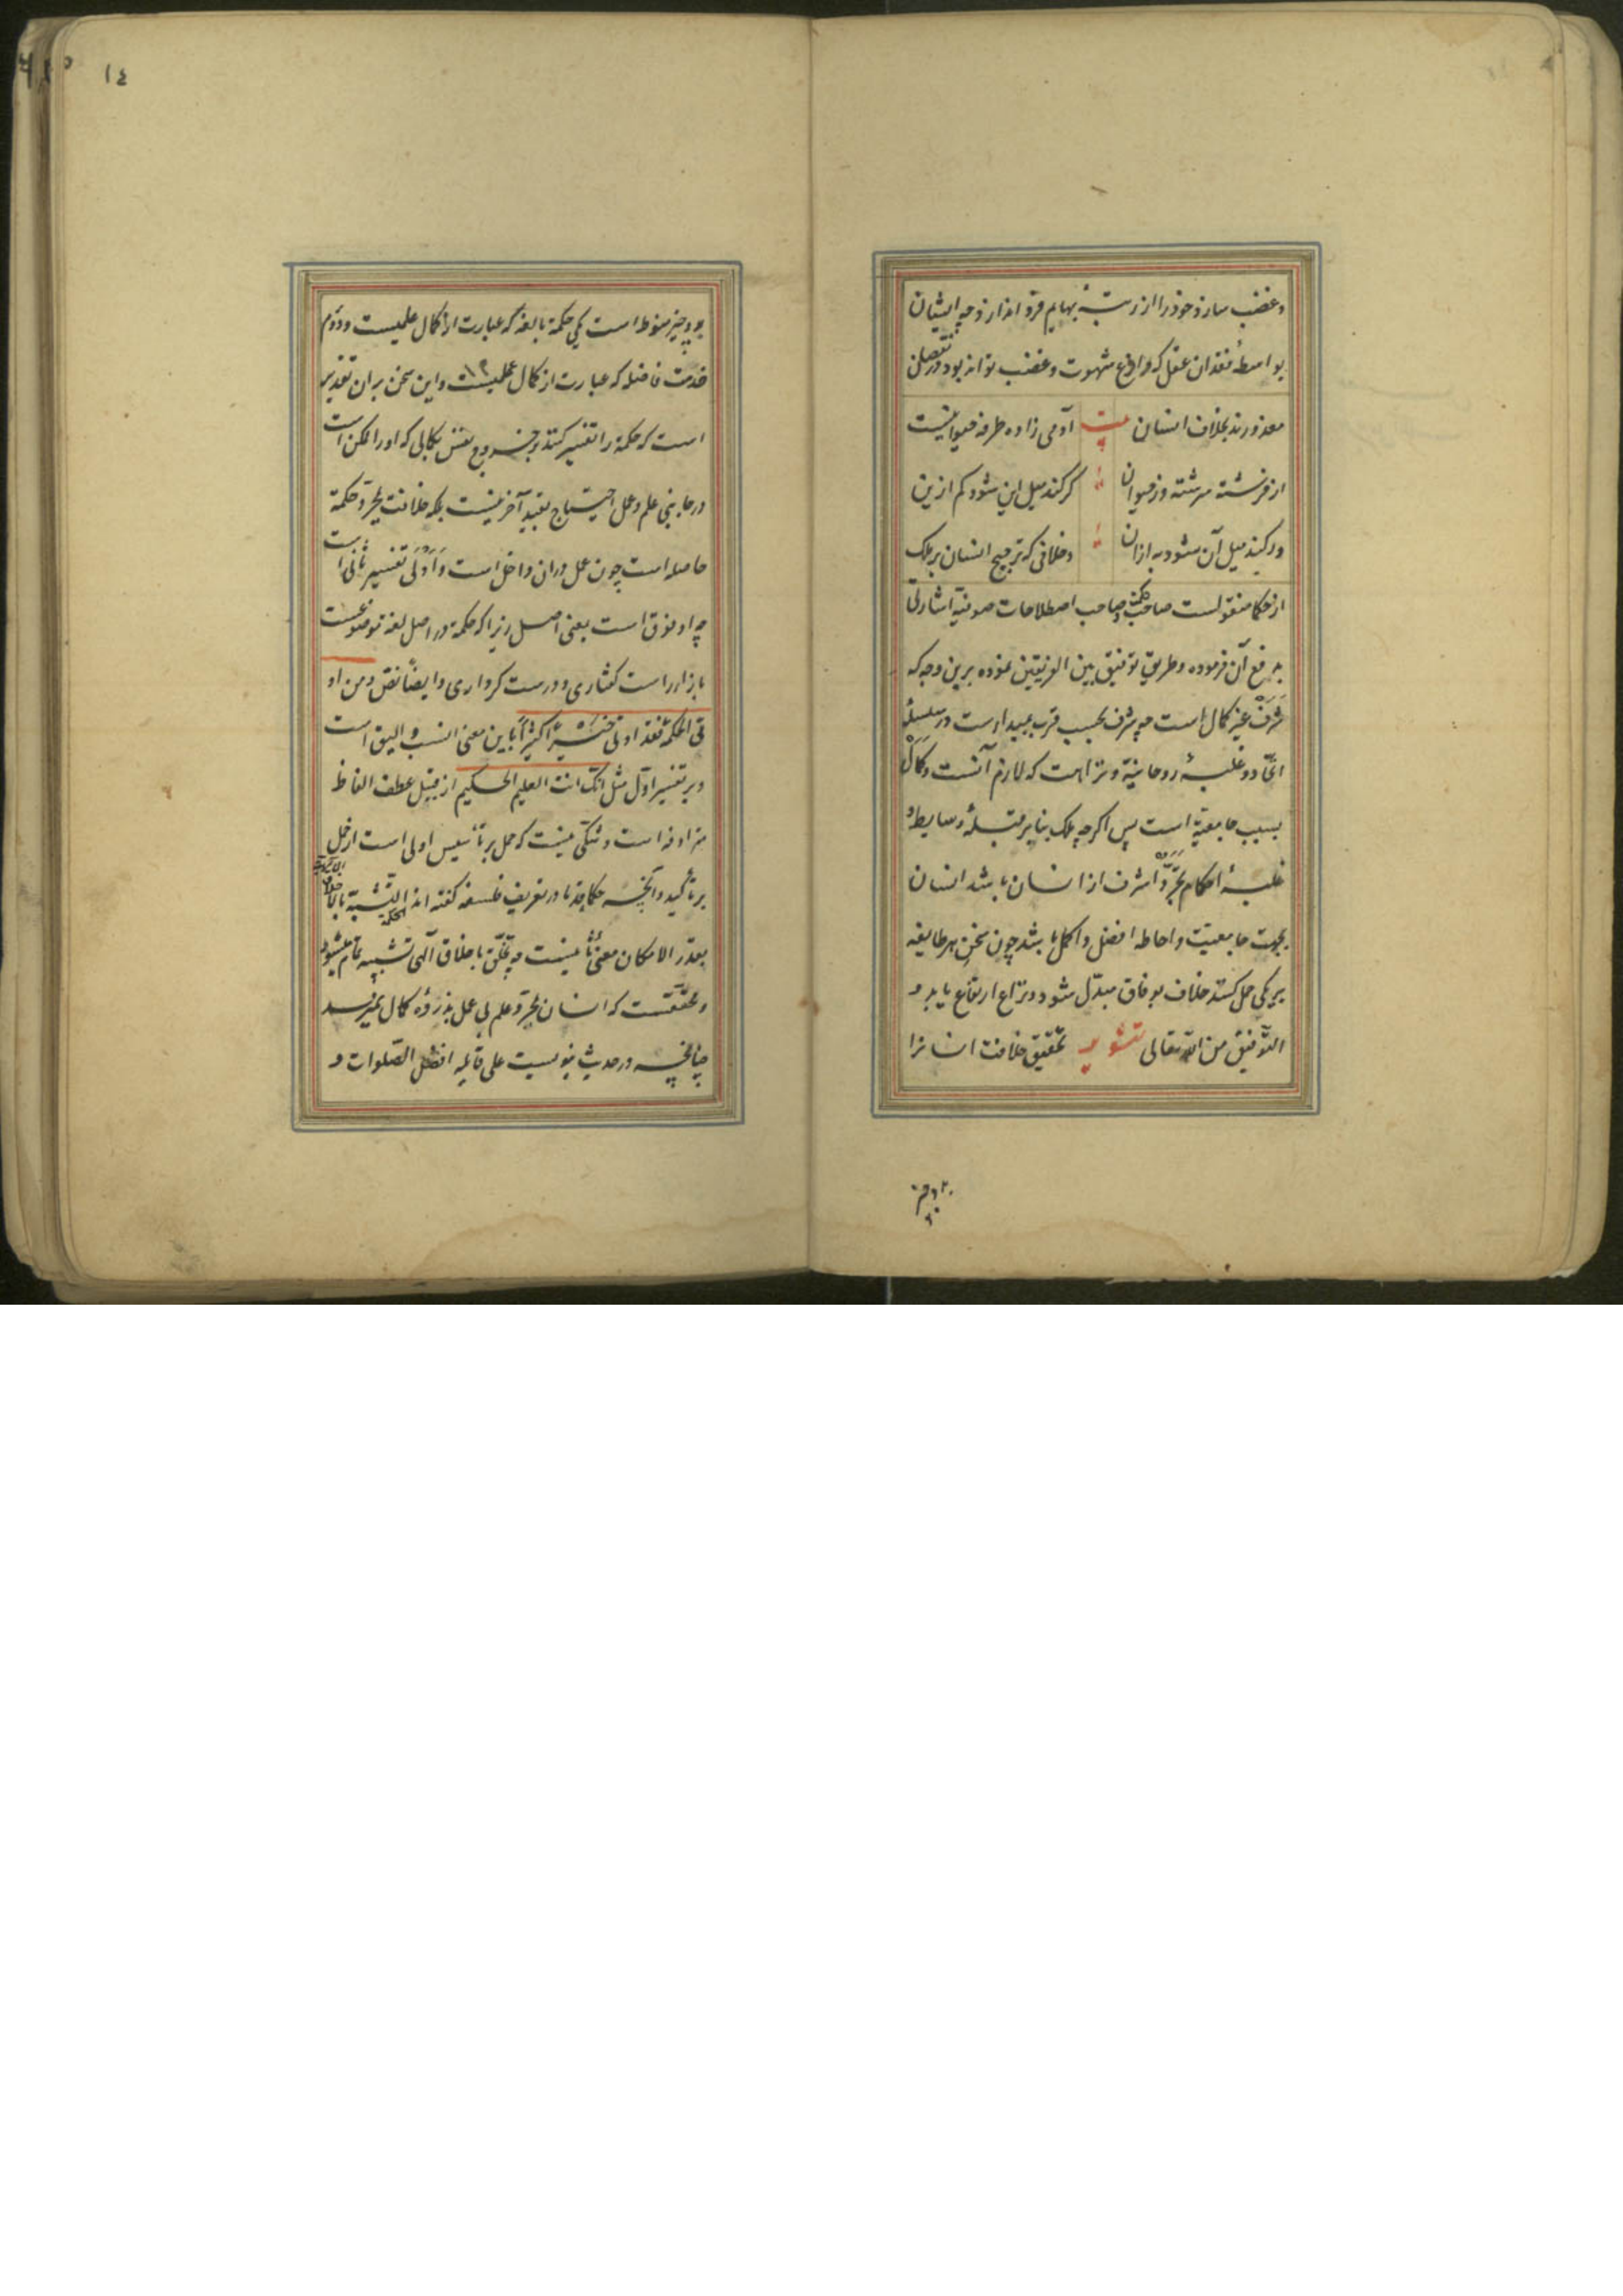 و غضب سازذ خوذ را از رتبهٔ بهایم فروتر اندازذ چه ایشان
بواسطهٔ فقدان عقل که وازع شهوت و غضب تواند بود در نقصان
معذورند بخلاف انسان بیت آدمی زاده طرفه معجونیست
از فرشته سرشته وز حیوان کر کند میل این شود کم ازین
ور کند میل آن شود به ازان و خلافی که ترجیح انسان بر ملک
از حکما منقولست صاحب اصطلاحات صوفیه اشارتی
به رفع آن فرموده و طریق توفیق بین الفریقین نموده برین وجه که
شرف غیر کمال است چه شرف بحسب قرب بمبداءست در سلسلهٔ
ایجاد و غلبهٔ روحانیة و نزاهت که لازم آنست و کمال
بسبب جامعیة است پس اکرچه ملک بنا بر قلهٔ وسایط و
غلبهٔ احکام تجرّد اشرف از انسان باشد انسان
بجهت جامعیت و احاطه افضل و اکمل باشد چون سخن هر طایفه
بر یکی حمل کنند خلاف بوفاق مبدّل شود و نزاع ارتفاع یابد و
التوفیق من الله تعالی تنویر تحقیق خلافت انسانرا
١٤
بدو چیز منوط است یکی حکمة بالغه که عبارت از کمال علمیست و دوّم
قدرت فاضله که عبارت از کمال عملیست و این سخن بران تقدیر
است که حکمة را تفسیر کنند بخروج نفس بکمالی که او را ممکن است
در جانبی علم و عمل احتیاج بقید آخر نیست بلکه خلافت بمجرّد حکمة
حاصله است چون عمل دران داخل است و اَولی تفسیر ثانی است
چه اوفق است بمعنی اصل زیرا که حکمة در اصل لغة موضوعست
بازاء راست کفتاری و درست کرداری و ایضاً نصّ و من یؤ
تی الحکمة فقد اوتی خیراً کثیراً باین معنی انسب و الیق است
و بر تفسیر اوّل مثل انّک انت العلیم الحکیم از قبیل عطف الفاظ
مترادفه است و شکّی نیست که حمل بر تأسیس اولی است از حمل
بر تأکید و آنچه حکما قدما در تعریف فلسفه کفته اند التشبّه بالاله
بقدر الامکان معنی ثانیست چه تخلّق باخلاق الهی تشبیه تمام میشود
و محقّقست که انسان بمجرّد علم بی عمل بذروهٔ کمال نمیرسد
چنانچه در حدیث نبویست علی قائله افضل الصّلوات و